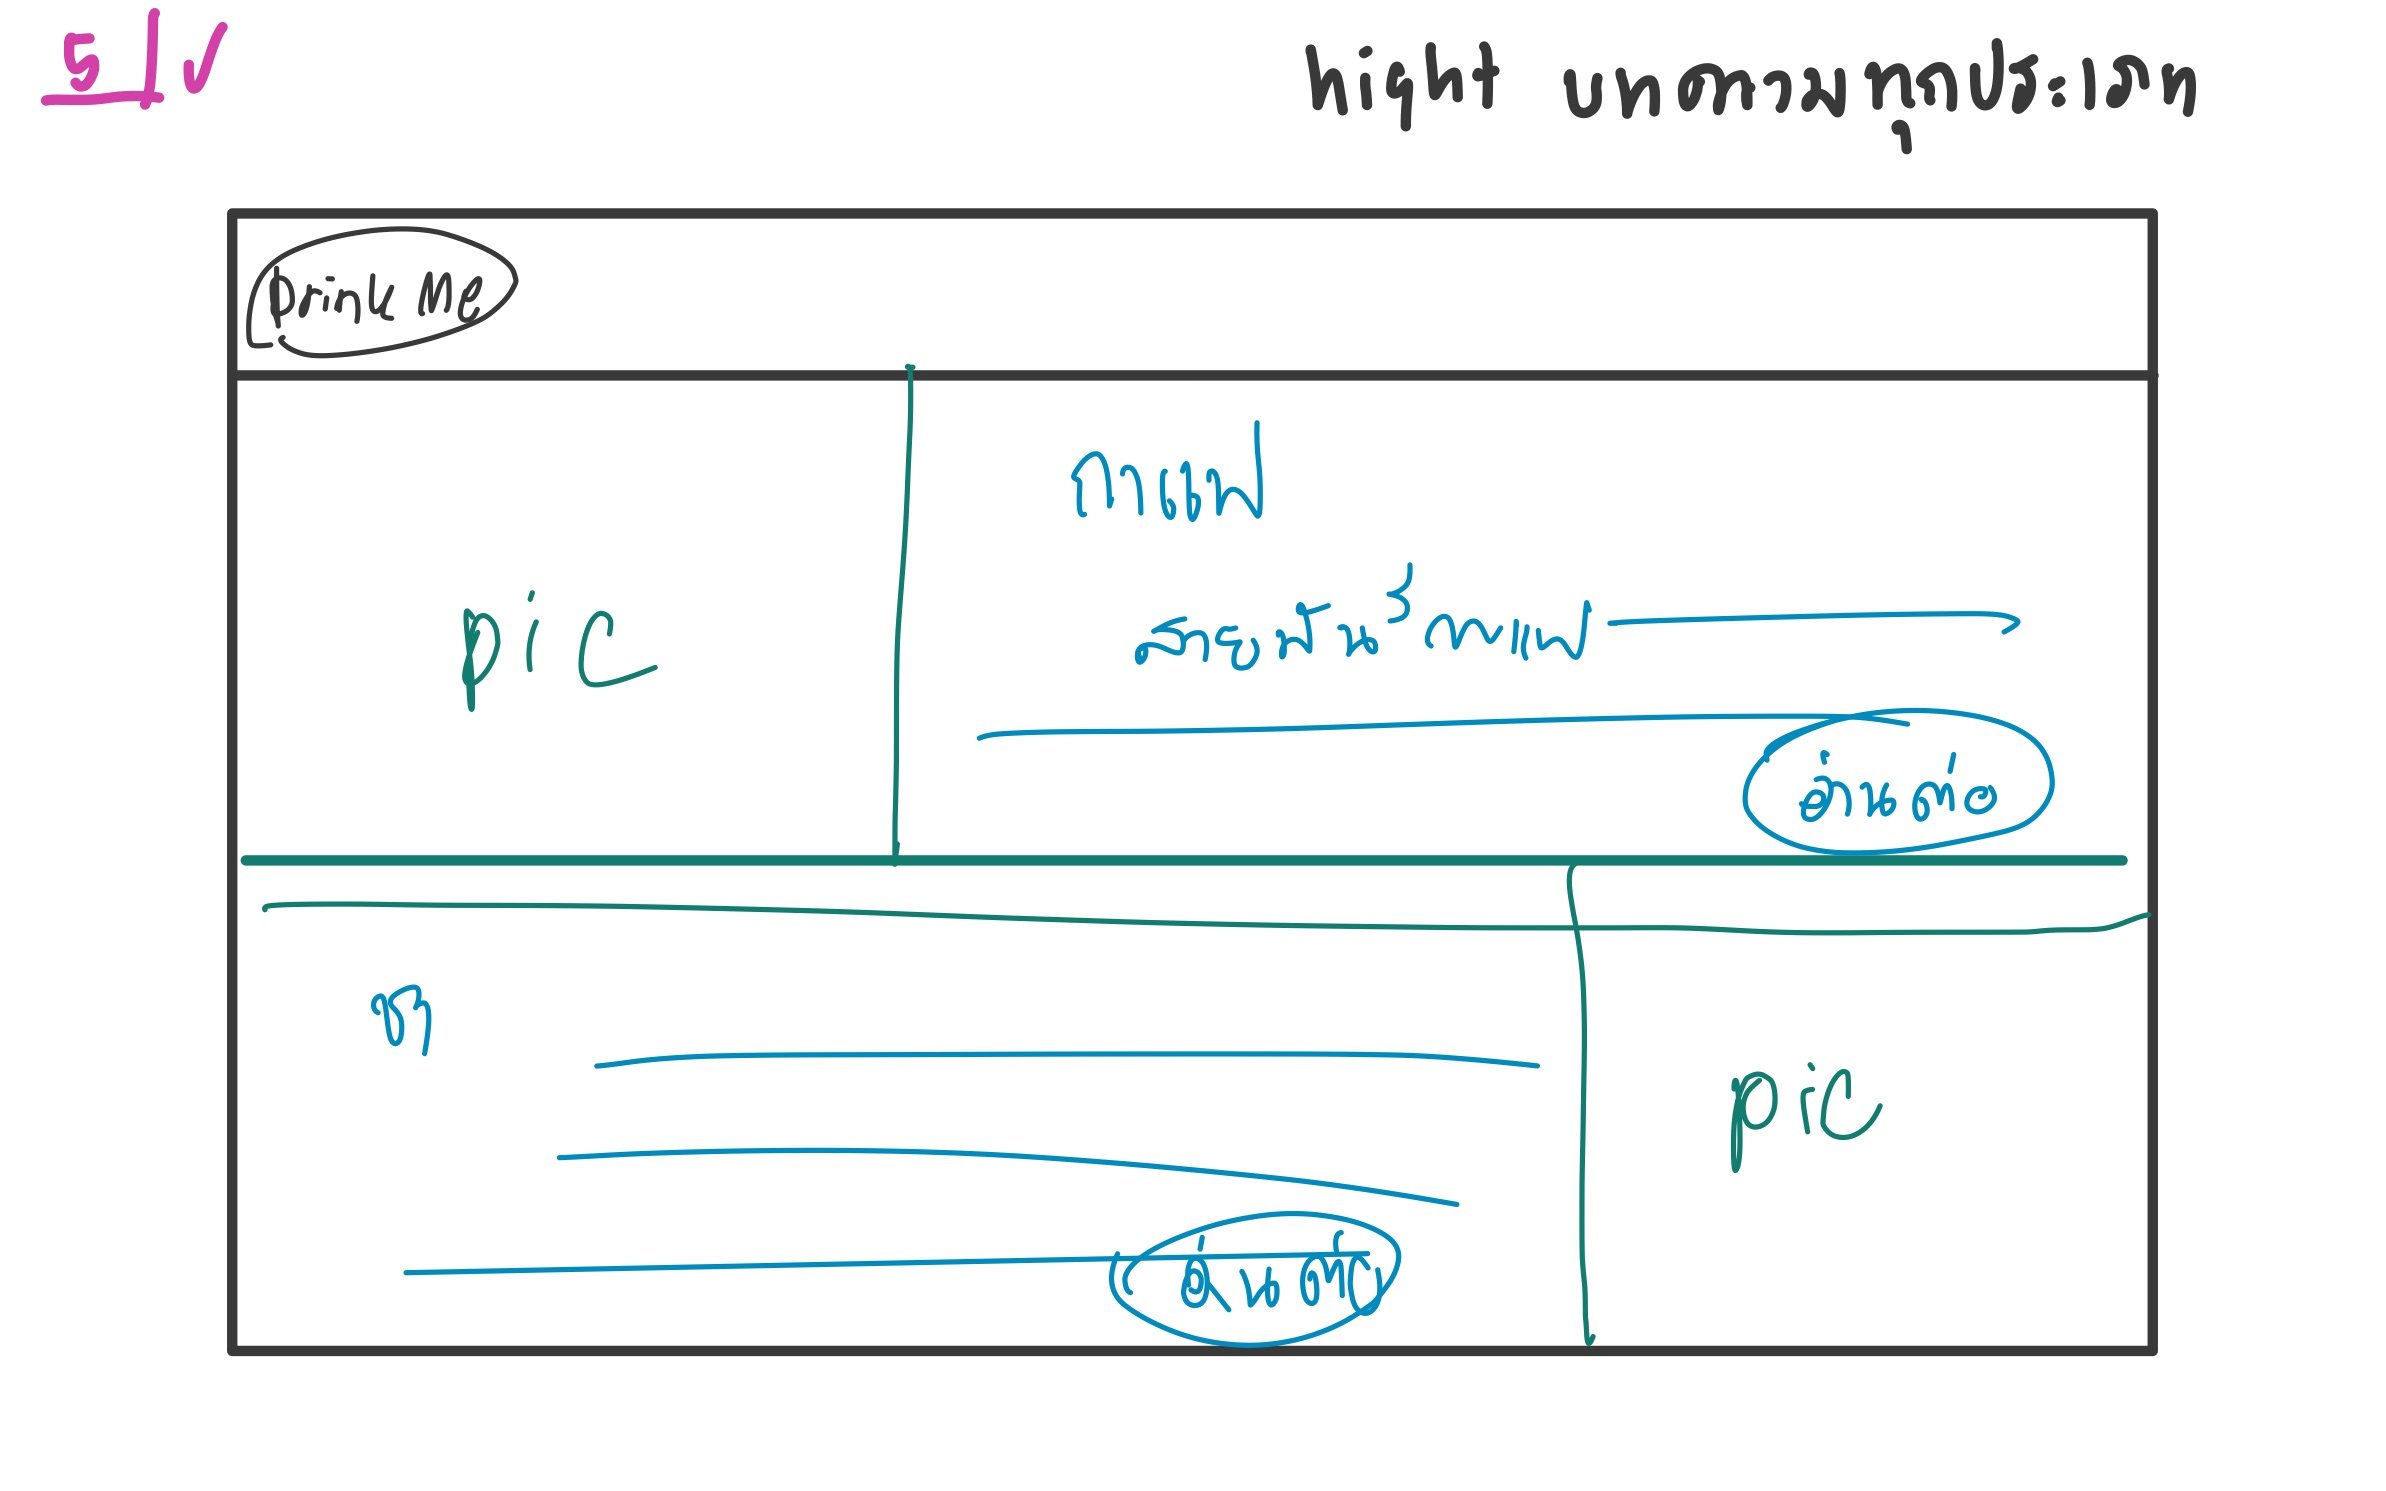 5 ✓
hight บทความทุกประเภท
Drink Me
กาแฟ
pic
สายพันธุ์กาแฟ
อ่านต่อ
ชา
pic
อ่านต่อ